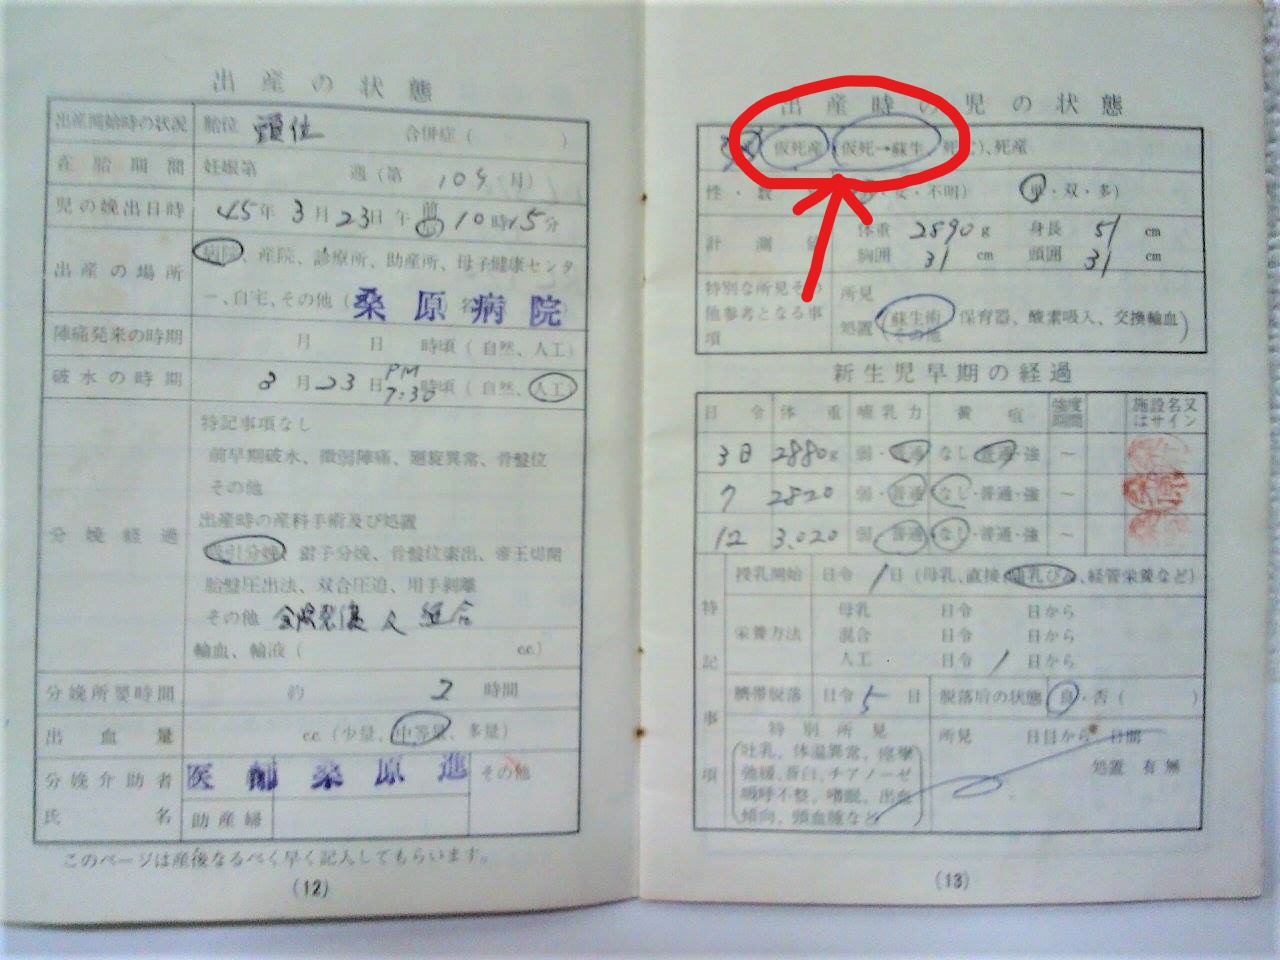 出産の状態
出産開始時の状況 胎位 頭位 合併症( )
在胎期間 妊娠第 週(第 10ヶ月)
児の娩出日時 45年3月23日午前後10時15分
出産の場所 病院、産院、診療所、助産所、母子健康センタ
ー、自宅、その他( 桑原病院
陣痛発来の時期 月 日 時頃(自然、人工)
破水の時期 3月23日 PM 7:30 時頃(自然、人工)
分娩経過
特記事項なし
前早期破水、微弱陣痛、廻旋異常、骨盤位
その他
出産時の産科手術及び処置
吸引分娩、鉗子分娩、骨盤位牽出、帝王切開
胎盤圧出法、双合圧迫、用手剥離
その他
輸血、輸液( cc.)
分娩所要時間 約 2 時間
出血量 cc.(少量、中等量、多量)
分娩介助者氏名 医師 桑原進 その他
助産婦
このページは産後なるべく早く記入してもらいます。
(12)
出産時の児の状態
仮死産 仮死→蘇生、死亡)、死産
性・数 女・不明) 単・双・多)
計測値 体重 2890g 身長 51cm
胸囲 31cm 頭囲 31cm
特別な所見その他参考となる事項 所見
処置(蘇生術、保育器、酸素吸入、交換輸血)
その他
新生児早期の経過
日令 体重 哺乳力 黄疸 強度期間 施設名又はサイン
3日 2880g 弱・普通 なし・普通・強 ~
7 2820 弱・普通 なし・普通・強 ~
12 3.020 弱・普通 なし・普通・強 ~
特記事項
授乳開始 日令 1日(母乳、直接、哺乳びん、経管栄養など)
栄養方法 母乳 日令 日から
混合 日令 日から
人工 日令 1日から
臍帯脱落 日令 5日 脱落后の状態 良・否( )
特別所見 所見 日目から 日間
(吐乳、体温異常、痙攣
弛緩、蒼白、チアノーゼ 処置 有無
呼吸不整、嗜眠、出血
傾向、頭血腫など)
(13)